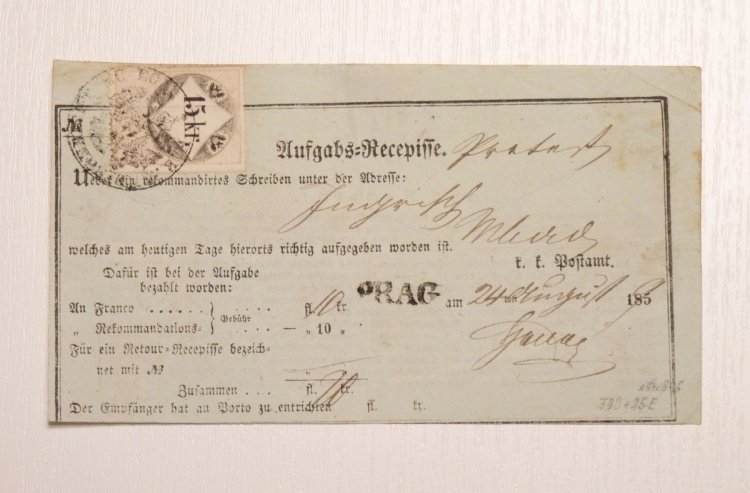 15 kr.
№
Aufgabs-Recepisse. Protest
Ueber ein rekommandirtes Schreiben unter der Adresse:
welches am heutigen Tage hierorts richtig aufgegeben worden ist.
k. k. Postamt.
Dafür ist bei der Aufgabe
bezahlt worden:
PRAG am 24 August 1859
An Franco . . . . . . . . . . fl. 10 kr.
Gebühr
„ Rekommandations- . . . . — „ 10 „
Für ein Retour-Recepisse bezeich-
net mit № — „
Zusammen . . . fl. kr.
Der Empfänger hat an Porto zu entrichten fl. kr.